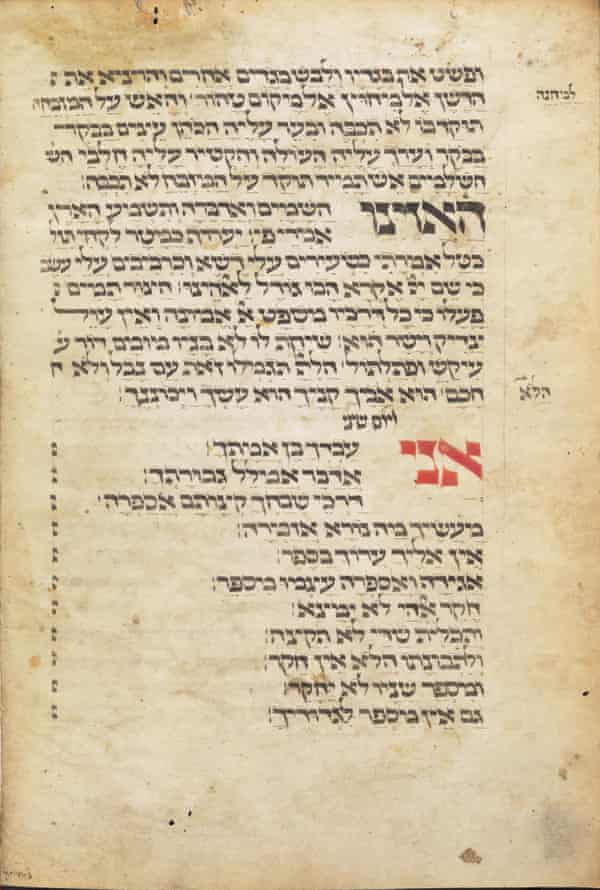 ופשט את בגדיו ולבש בגדים אחרים והוציא את ה
הדשן אל מיחוץ אל מקום טהור׳ והאש על המזבח
למחנה
תוקד בו לא תכבה ובער עליה הכהן עיצים בבקר
בבקר וערך עליה העולה והקטיר עליה חלבי הש
השלמים אש תמיד תוקד על המזבח לא תכבה׃
האזינו השמים ואדברה ותשמע הארץ
אמרי פי׃ יערוף כמטר לקחי תזל
כטל אמרתי כשעירים עלי דשא וכרביבים עלי עשב
כי שם אקרא הבו גודל לאלהינו׃ הצור תמים פ
פעלו כי כל דרכיו משפט אמונה ואין עול
צדיק וישר הוא׃ שיחת לו לא בניו מומם דור ע
עיקש ופתלתול׃ תגמלו זאת עם נבל ולא ח
חכם׳ הוא אביך קניך הוא עשך ויכוננך׃
הלא
ליום שיני
אני עבדך בן אמתך׃
אדבר אמלל גבורתך׃
דרכי שבחך אספרה׳
מעשיך מה נורא אומרה׃
אין אליך ערוך בספר׃
אגידה ואספרה עיצמו מיספר׃
חקר לא ימצא׃
ותכלית שדי לא תקיצה׃
ולתבונתו הלא אין חקר׃
ומיספר שניו לא יחקר׃
גם אין מיספר לגדודיך׃